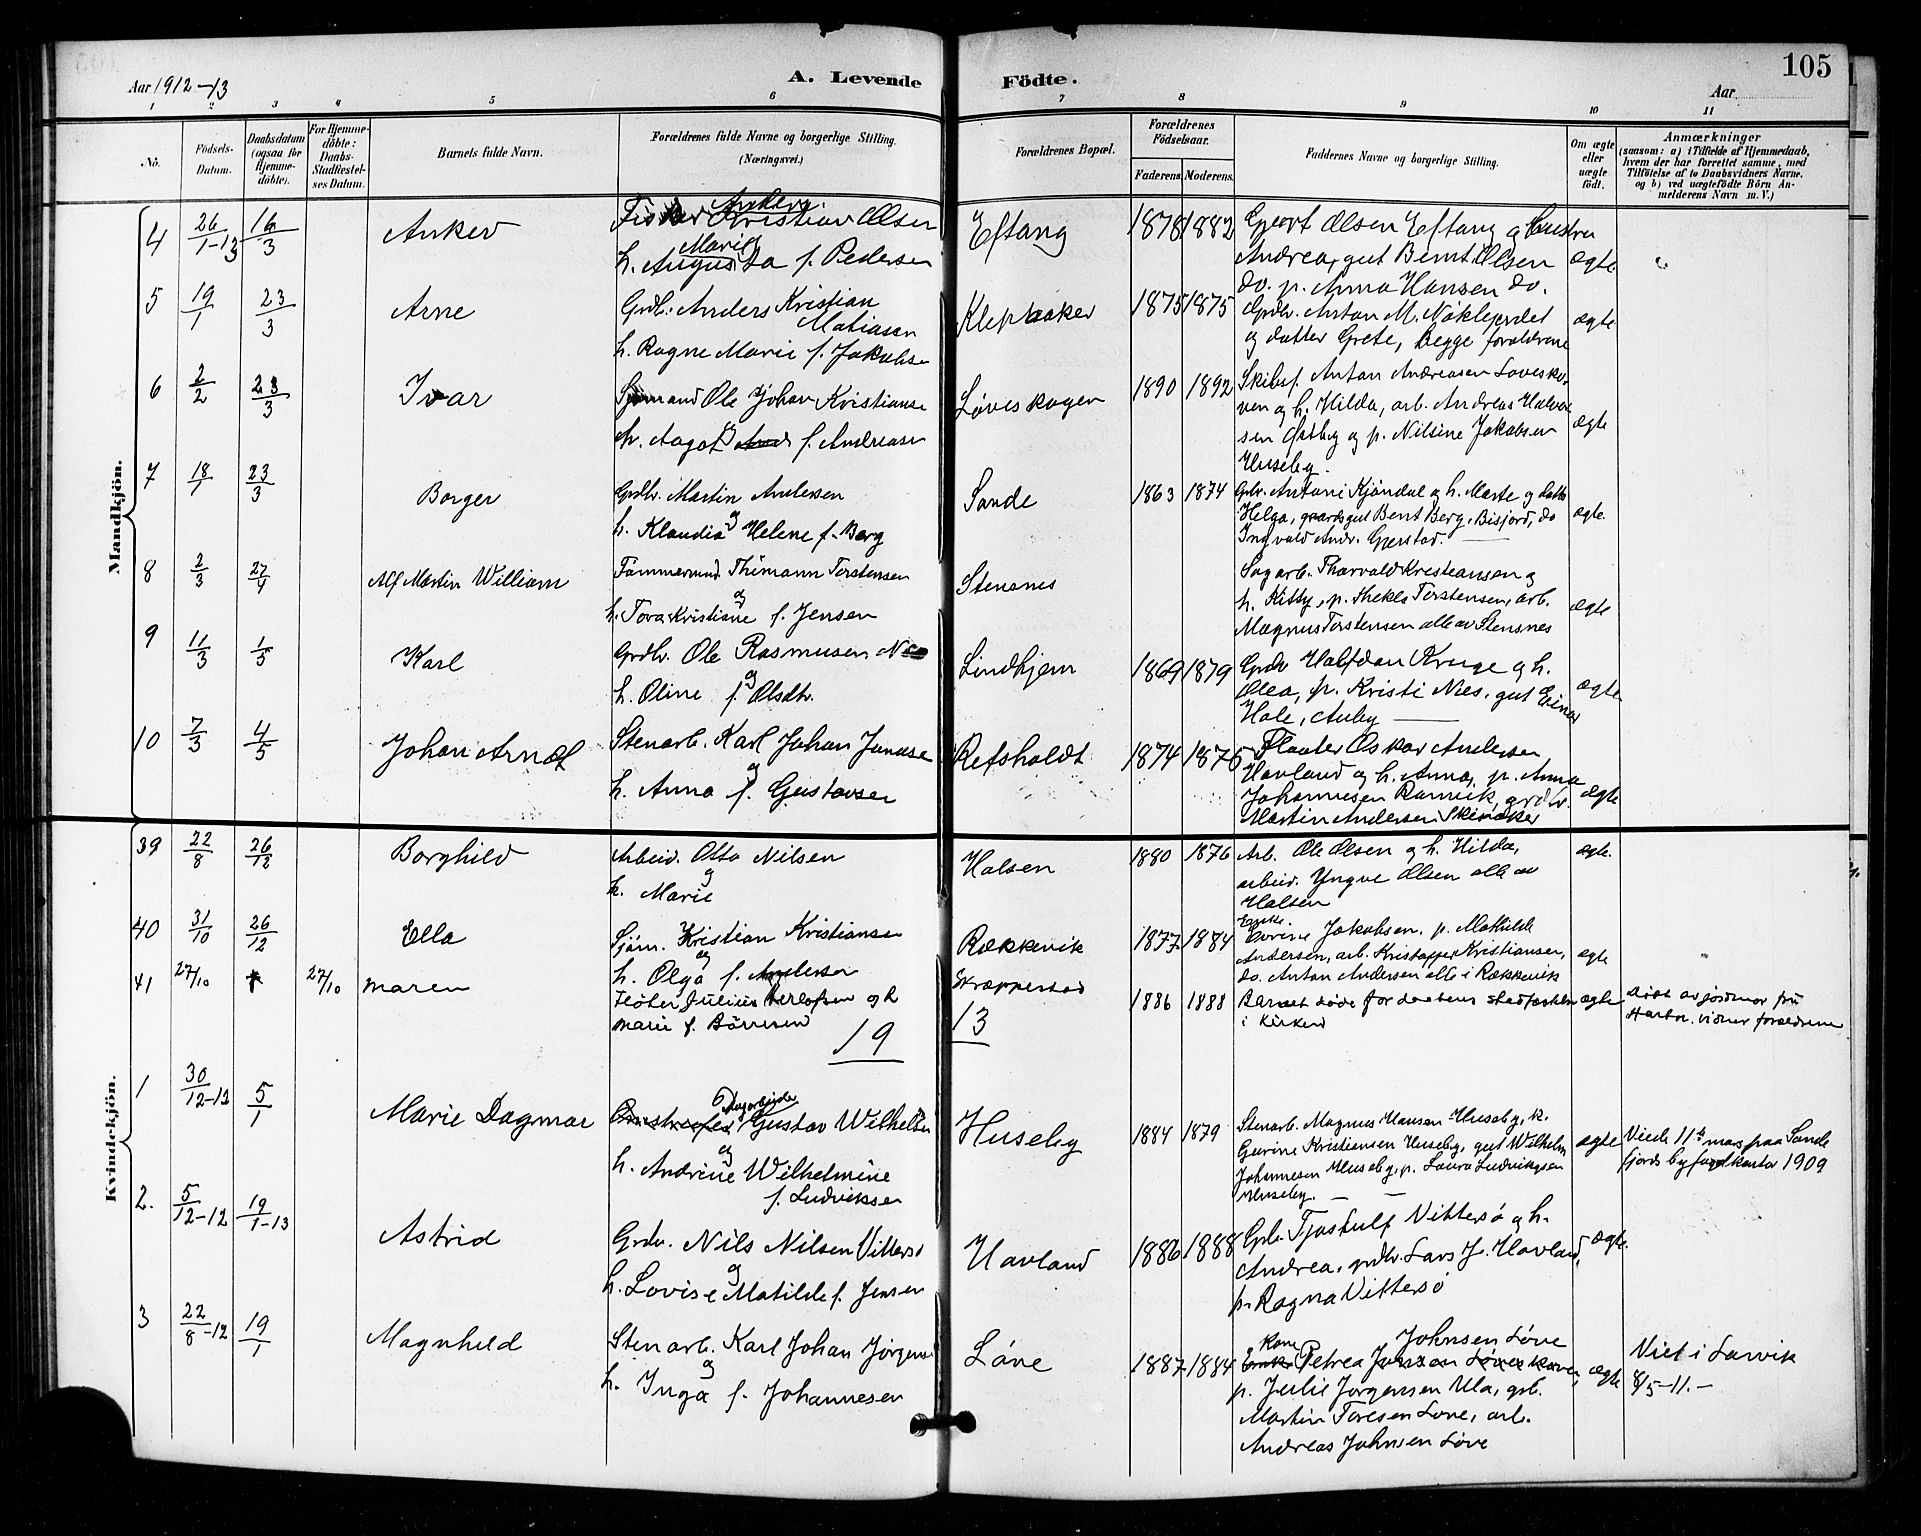 105
Aar 1912-13
A. Levende Födte.
Aar
1 2 3 4 5 6 7 8 9 10 11
No.
Födsels-Datum.
Daabsdatum (ogsaa for Hjemme-döbte).
For Hjemme-döbte: Daabs-Stadfestel-ses Datum.
Barnets fulde Navn.
Forældrenes fulde Navne og borgerlige Stilling. (Næringsvei.)
Forældrenes Bopæl.
Forældrenes Födselsaar.
Faderens. Moderens.
Faddernes Navne og borgerlige Stilling.
Om ægte eller uægte födt.
Anmærkninger
(saasom: a) i Tilfælde af Hjemmedaab,
hvem der har forrettet samme, med
Tilföielse af to Daabsvidners Navne.
og b) ved uægtefödte Börn An-
melderens Navn m. V.)
Mandkjön.
4 26/1-13 16/3 Anker
Fisker Kristian Anker Olsen
og
h. Augusta Marie f. Pedersen
Eftang 1878 1882
Gjert Olsen Eftang og hustru
Andrea, gut Bernt Olsen
do. p. Anna Hansen do.
ægte
5 19/1 23/3 Arne
Grdbr. Anders Kristian
Matiasen
h. Ragne Marie f. Jakobse
Klepaaker 1875 1875
Grdbr. Anton M. Nøklegaard
og datter Grete, begge forældrene
ægte
6 2/2 23/3 Ivar
Sjømand Ole Johan Kristianse
og
h. Aagot f. Andreasen
Løveskogen 1890 1892
Skibsf. Anton Andreasen Lovesko-
ven og h. Hilda, arb. Andreas Halvor
sen Østby og p. Nilsine Jakobsen
Huseby.
ægte
7 18/1 23/3 Borger
Grdbr. Martin Andersen
og
h. Klaudia Helene f. Berg
Sande 1863 1874
Gbr. Antoni Kjøndal og h. Marte og datt
Helga, gaardsgut Bent Berg, Bisjord, do
Ingvald Andr. Gjerstad.
ægte.
8 2/3 27/4 Alf Martin William
Tømmermd. Thimann Torstensen
og
h. Tora Kristiane f. Jensen
Stensnes
Sagarb. Thorvald Kristiansen og
h. Kitty, p. Thekla Torstensen, arb.
Magnus Torstensen alle av Stensnes
ægte
9 11/3 1/5 Karl
Grdbr. Ole Rasmusen
og
h. Oline f. Olsdtr.
Lindhjem 1869 1879
Grdbr Halfdan Kruge og h.
Olea, p. Kristi Nies, gut Einar
Hole, Auby
ægte
10 7/3 4/5 Johan Arndt
Stenarb. Karl Johan Jonasse
og
h. Anna f. Gustavsen
Refsholdt 1874 1876
Fløater Oskar Andersen
Havland og h. Anna, p. Anna
Johannesen Ramvik, grdbr.
Martin Andersen Skinaker
ægte
39 22/8 26/12 Borghild
Arbeid. Otto Nilsen
og
h. Marie
Halsen 1880 1876
Arb. Ole Olsen og h. Hilda,
arbeid. Yngve Olsen alle av
Halsen
ægte.
40 31/10 26/12 Ella
Sjøm. Kristian Kristianse
og
h. Olga f. Andersen
Rækkevik 1877 1884
Enke.
Evrine Jakobsen, p. Mathilde
Andersen, arb. Kristoffer Kristiansen,
do. Anton Andersen alle i Rækkevik
ægte
41 27/10 27/10 Maren
Julius Herlofsen og h
Marie f. Børresen
1886 1888
Barnet døde før daabens stadfæstelse
i kirken
ægte
Døbt av jordmor fru
Vidner forældrene
19
13
Kvindekjön.
1 30/12-12 5/1 Marie Dagmar
Dagarbeider
Gustav Wilhelmsen
og
h. Andrine Wilhelmine
f. Ludviksen
Huseby 1884 1879
Stenarb. Magnus Hansen Huseby, k.
Gurine Kristiansen Huseby, gut Wilhelm
Johannesen Huseby, p. Laura Ludviksen
Huseby.
ægte
Viede 11te mars paa Sande
fjords byfogdkontor 1909
2. 5/12-12 19/1-13 Astrid
Grdbr. Nils Nilsen Vittersø
og
h. Lovise Matilde f. Jensen
Havland 1886 1888
Gbr. Tjostulf Vittersø og h.
Andrea, grdbr. Lars J. Havland,
p. Ragna Vittersø
ægte.
3 22/8-12 19/1 Magnhild
Stenarb. Karl Johan Jørgens
og
h. Inga f. Johannesen
Løve 1887 1884
Kone Johnsen Løve
Petrea
p. Julie Jørgensen Ula, gbr.
Martin Toresen Løve, arb.
Andreas Johnsen Løve
ægte
Viet i Larvik
8/5-11.-